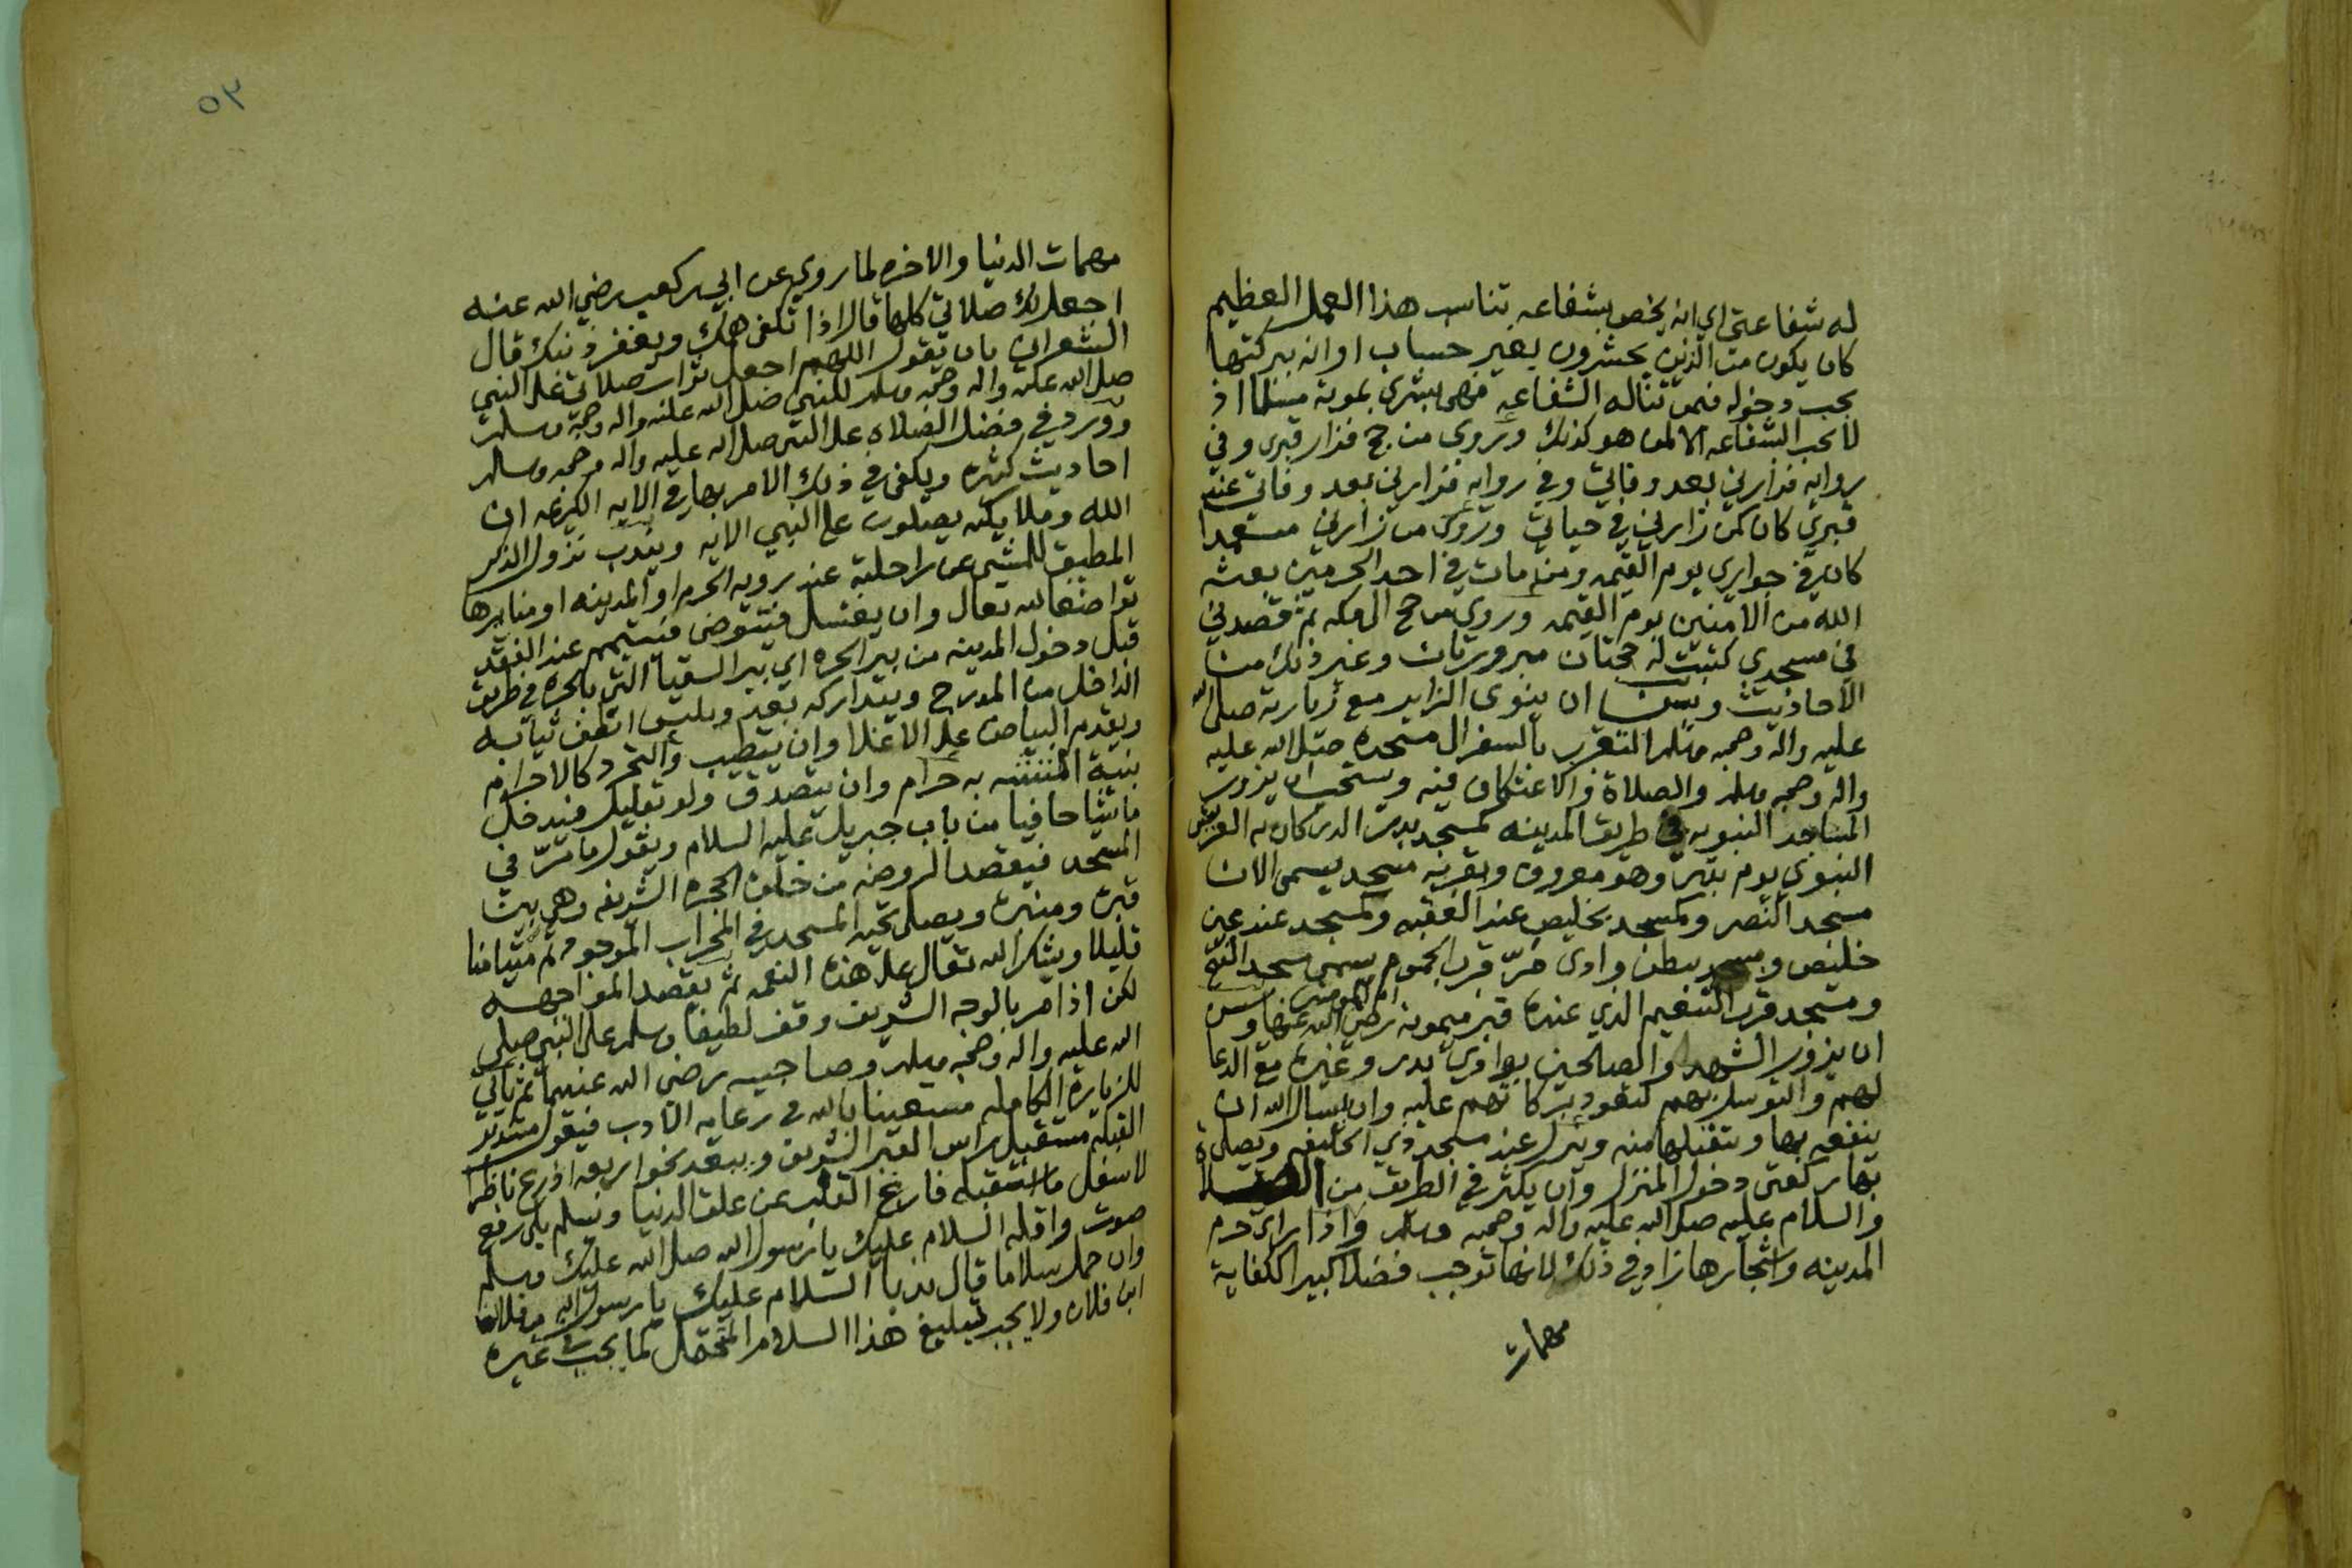 له شفاعتي اي انه يخص بشفاعه تناسب هذا العمل العظيم
كان يكون من الذين يحشرون بغير حساب او انه ببركتها
يجب دخوله فيمن تناله الشفاعه فهي بشرى بموته مسلما اذ
لا تجب الشفاعه الا لمن هو كذلك ويروى من حج فزار قبري وفي
روايه فزارني بعد وفاتي وفي روايه فزارني بعد وفاتي عند
قبري كان كمن زارني في حياتي ويروى من زارني متعمدا
كان في جواري يوم القيمه ومن مات في احد الحرمين بعثه
الله من الامنين يوم القيمه وروي من حج الى مكه ثم قصدني
في مسجدي كتبت له حجتان مبرورتان وغير ذلك من
الاحاديث ويسن ان ينوى الزاير مع زيارته صلى الله
عليه واله وصحبه وسلم التقرب بالسفر الى مسجده صلى الله عليه
واله وصحبه وسلم والصلاة والاعتكاف فيه ويستحب ان يزور
المساجد النبويه في طريق المدينه كمسجد بدر الذي كان به العريش
النبوي يوم بدر وهو معروف وبقربه مسجد يسمى الان
مسجد النصر وكمسجد بخليص عند العقبه وكمسجد عند عين
خليص ومسجد ببطن وادى مرّ قرب الجموم يسمى مسجد الفتح
ومسجد قرب التنعيم الذي عنده قبر ميمونه ام المومنين رضي الله عنها ويسن
ان يزور الشهدا والصالحين بوادي بدر وغيره مع الدعا
لهم والتوسل بهم لتعود بركاتهم عليه وان يسال الله ان
ينفعه بها ويتقبلها منه وينزل عند مسجد ذي الحليفه ويصلي
بها ركعتي دخول المنزل وان يكثر في الطريق من الصلاة
والسلام عليه صلى الله عليه واله وصحبه وسلم واذا راى حرم
المدينه واشجارها زاد في ذلك لانها توجب فضلا كبيرا لكفاية
مهمات
٥٣
مهمات الدنيا والاخره لما روي عن ابي بن كعب رضي الله عنه
اجعل لك صلاتي كلها قال اذا تكفى همك ويغفر ذنبك قال
الشعراني بان تقول اللهم اجعل ثواب صلاتي على النبي
صلى الله عليه واله وصحبه وسلم للنبي صلى الله عليه واله وصحبه وسلم
وورد في فضل الصلاة على النبي صلى الله عليه واله وصحبه وسلم
احاديث كثيره ويكفى في ذلك الامر بها في الايه الكريمه ان
الله وملايكته يصلون على النبي الايه ويندب نزول الذكر
المطيق للمشي عن راحلته عند رويه الحرم او المدينه او منايرها
تواضعا لله تعالى وان يغتسل فيتوضى فيتيمم عند الفقد
قبل دخول المدينه من بير الحره اي بير السقيا التي بالحره في طريق
الداخل من المدرج ويتداركه بعد ويلبس انظف ثيابه
ويقدم البياض على الاغلا وان يتطيب والتجرد كالاحرام
بنية التشبه به حرام وان يتصدق ولو بقليل فيدخل
ماشيا حافيا من باب جبريل عليه السلام ويقول ما مرّ في
المسجد فيقصد الروضه من خلف الحجره الشريفه وهي بين
قبره ومنبره ويصلي تحيه المسجد في المحراب الموجود ثم متيامنا
قليلا ويشكر الله تعالى على هذه النعمه ثم يقصد المواجهه
لكن اذا مر بالوجه الشريف وقف لطيفا وسلم على النبي صلى
الله عليه واله وصحبه وسلم وصاحبيه رضي الله عنهما ثم ياتي
للزيارة الكامله مستعينا بالله في رعايه الادب فيقول مستدبر
القبله مستقبل راس القبر الشريف ويبعد نحو اربعه اذرع ناظرا
لاسفل ما استقبله فارغ القلب من علق الدنيا ويسلم بلا رفع
صوت واقله السلام عليك يا رسول الله صلى الله عليك وسلم
وان حمل سلاما قال ندبا السلام عليك يا رسول الله من فلان
ابن فلان ولا يجب تبليغ هذا السلام المتحمل كما يجب في غيره